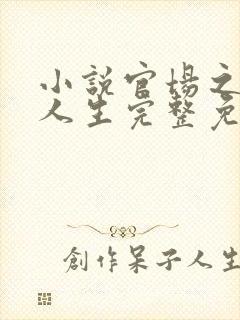 小説官場之
人生完整免
創作呆子人生